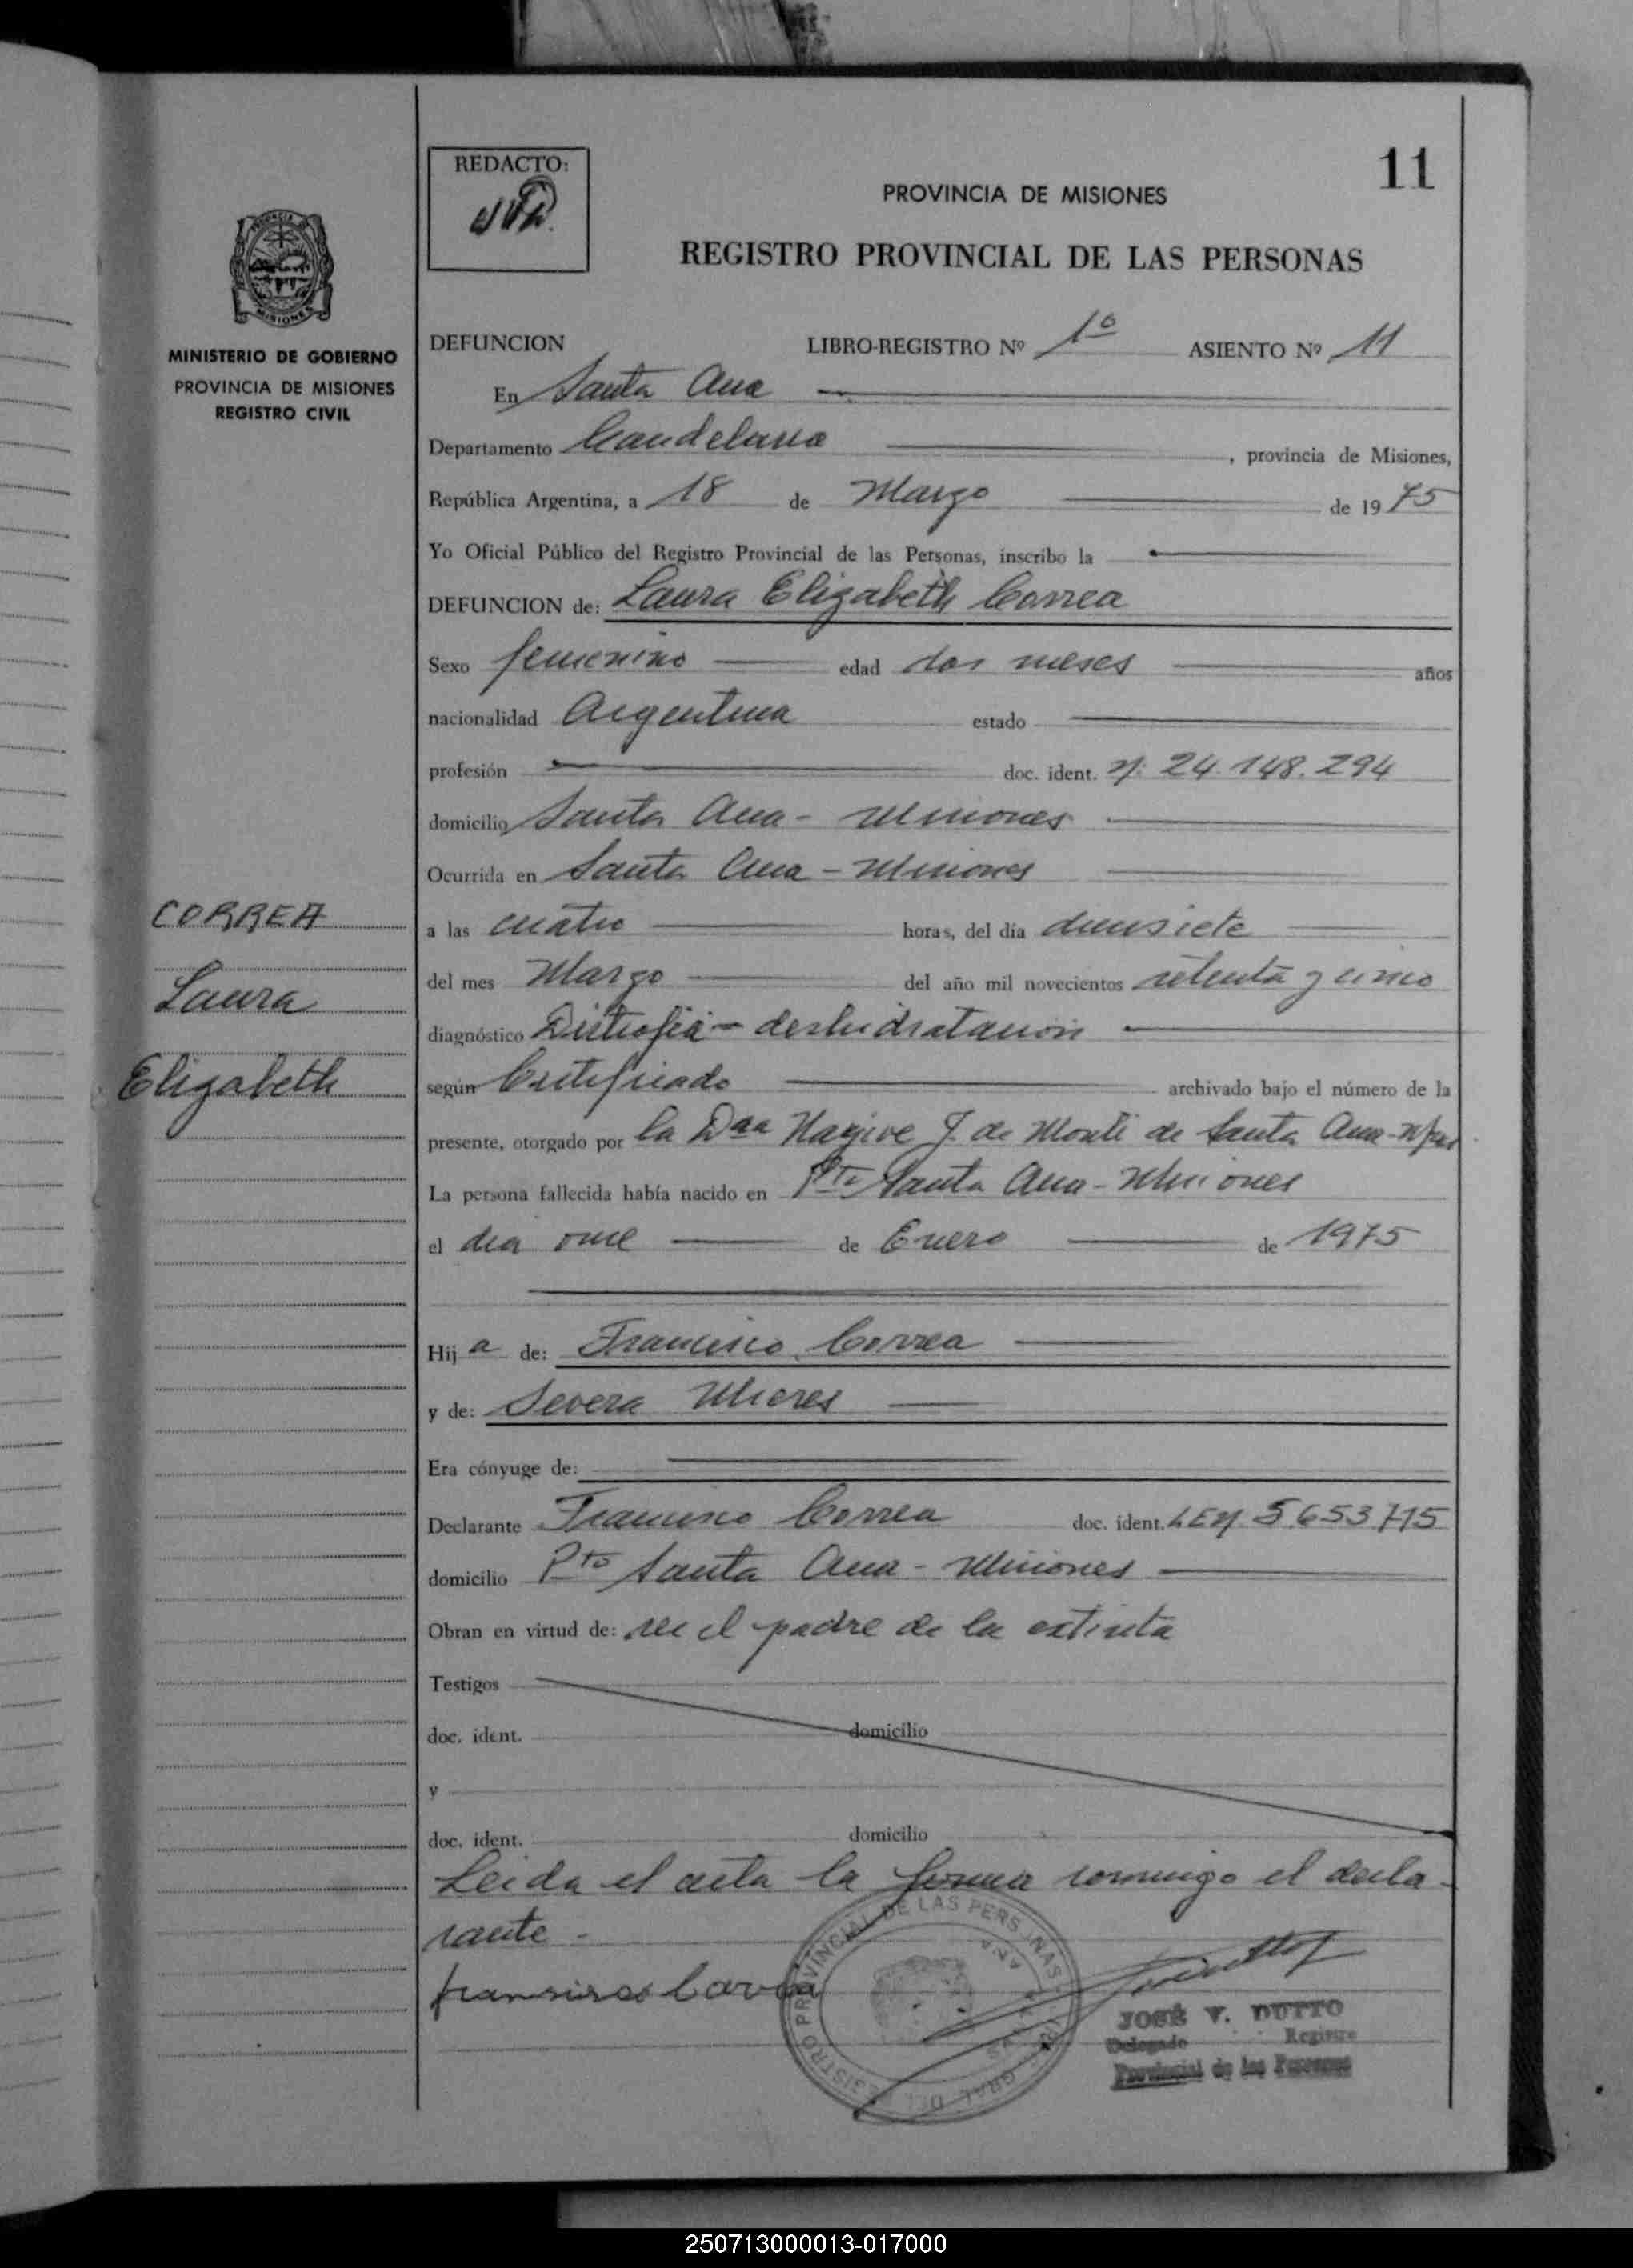 11
REDACTO:
PROVINCIA DE MISIONES
REGISTRO PROVINCIAL DE LAS PERSONAS
MISIONES
MINISTERIO DE GOBIERNO
PROVINCIA DE MISIONES
REGISTRO CIVIL
CORREA
Laura
Elizabeth
DEFUNCION LIBRO-REGISTRO Nº 1º ASIENTO Nº 11
En Santa Ana
Departamento Candelaria , provincia de Misiones,
República Argentina, a 18 de Marzo de 1975
Yo Oficial Público del Registro Provincial de las Personas, inscribo la
DEFUNCION de: Laura Elizabeth Correa
Sexo femenino edad dos meses años
nacionalidad Argentina estado
profesión doc. ident. Nº 24.148.294
domicilio Santa Ana - Misiones
Ocurrida en Santa Ana - Misiones
a las cuatro horas, del día diecisiete
del mes Marzo del año mil novecientos setenta y cinco
diagnóstico Distrofia - deshidratación
según Certificado archivado bajo el número de la
presente, otorgado por la Dra J. de Monti de Santa Ana
La persona fallecida había nacido en Pto Santa Ana - Misiones
el dia once de Enero de 1975
Hija de: Francisco Correa
y de: Severa Mieres
Era cónyuge de:
Declarante Francisco Correa doc. ident. LE Nº 5.653.715
domicilio Pto Santa Ana - Misiones
Obran en virtud de: ser el padre de la extinta
Testigos
doc. ident. domicilio
y
doc. ident. domicilio
Leida el acta la firma conmigo el decla-
rante -
fransisco Correa
REGISTRO PROVINCIAL DE LAS PERSONAS
JOSÉ V. DUTTO
Delegado Registro
Provincial de las Personas
250713000013-017000